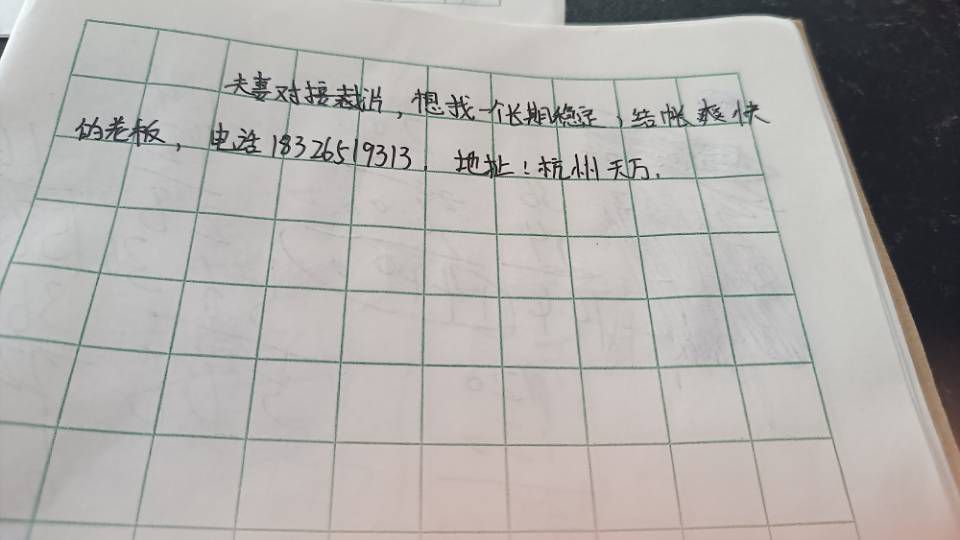 夫妻对接裁片，想找一个长期稳定，结帐爽快
的老板，电话18326519313．地址：杭州天万．